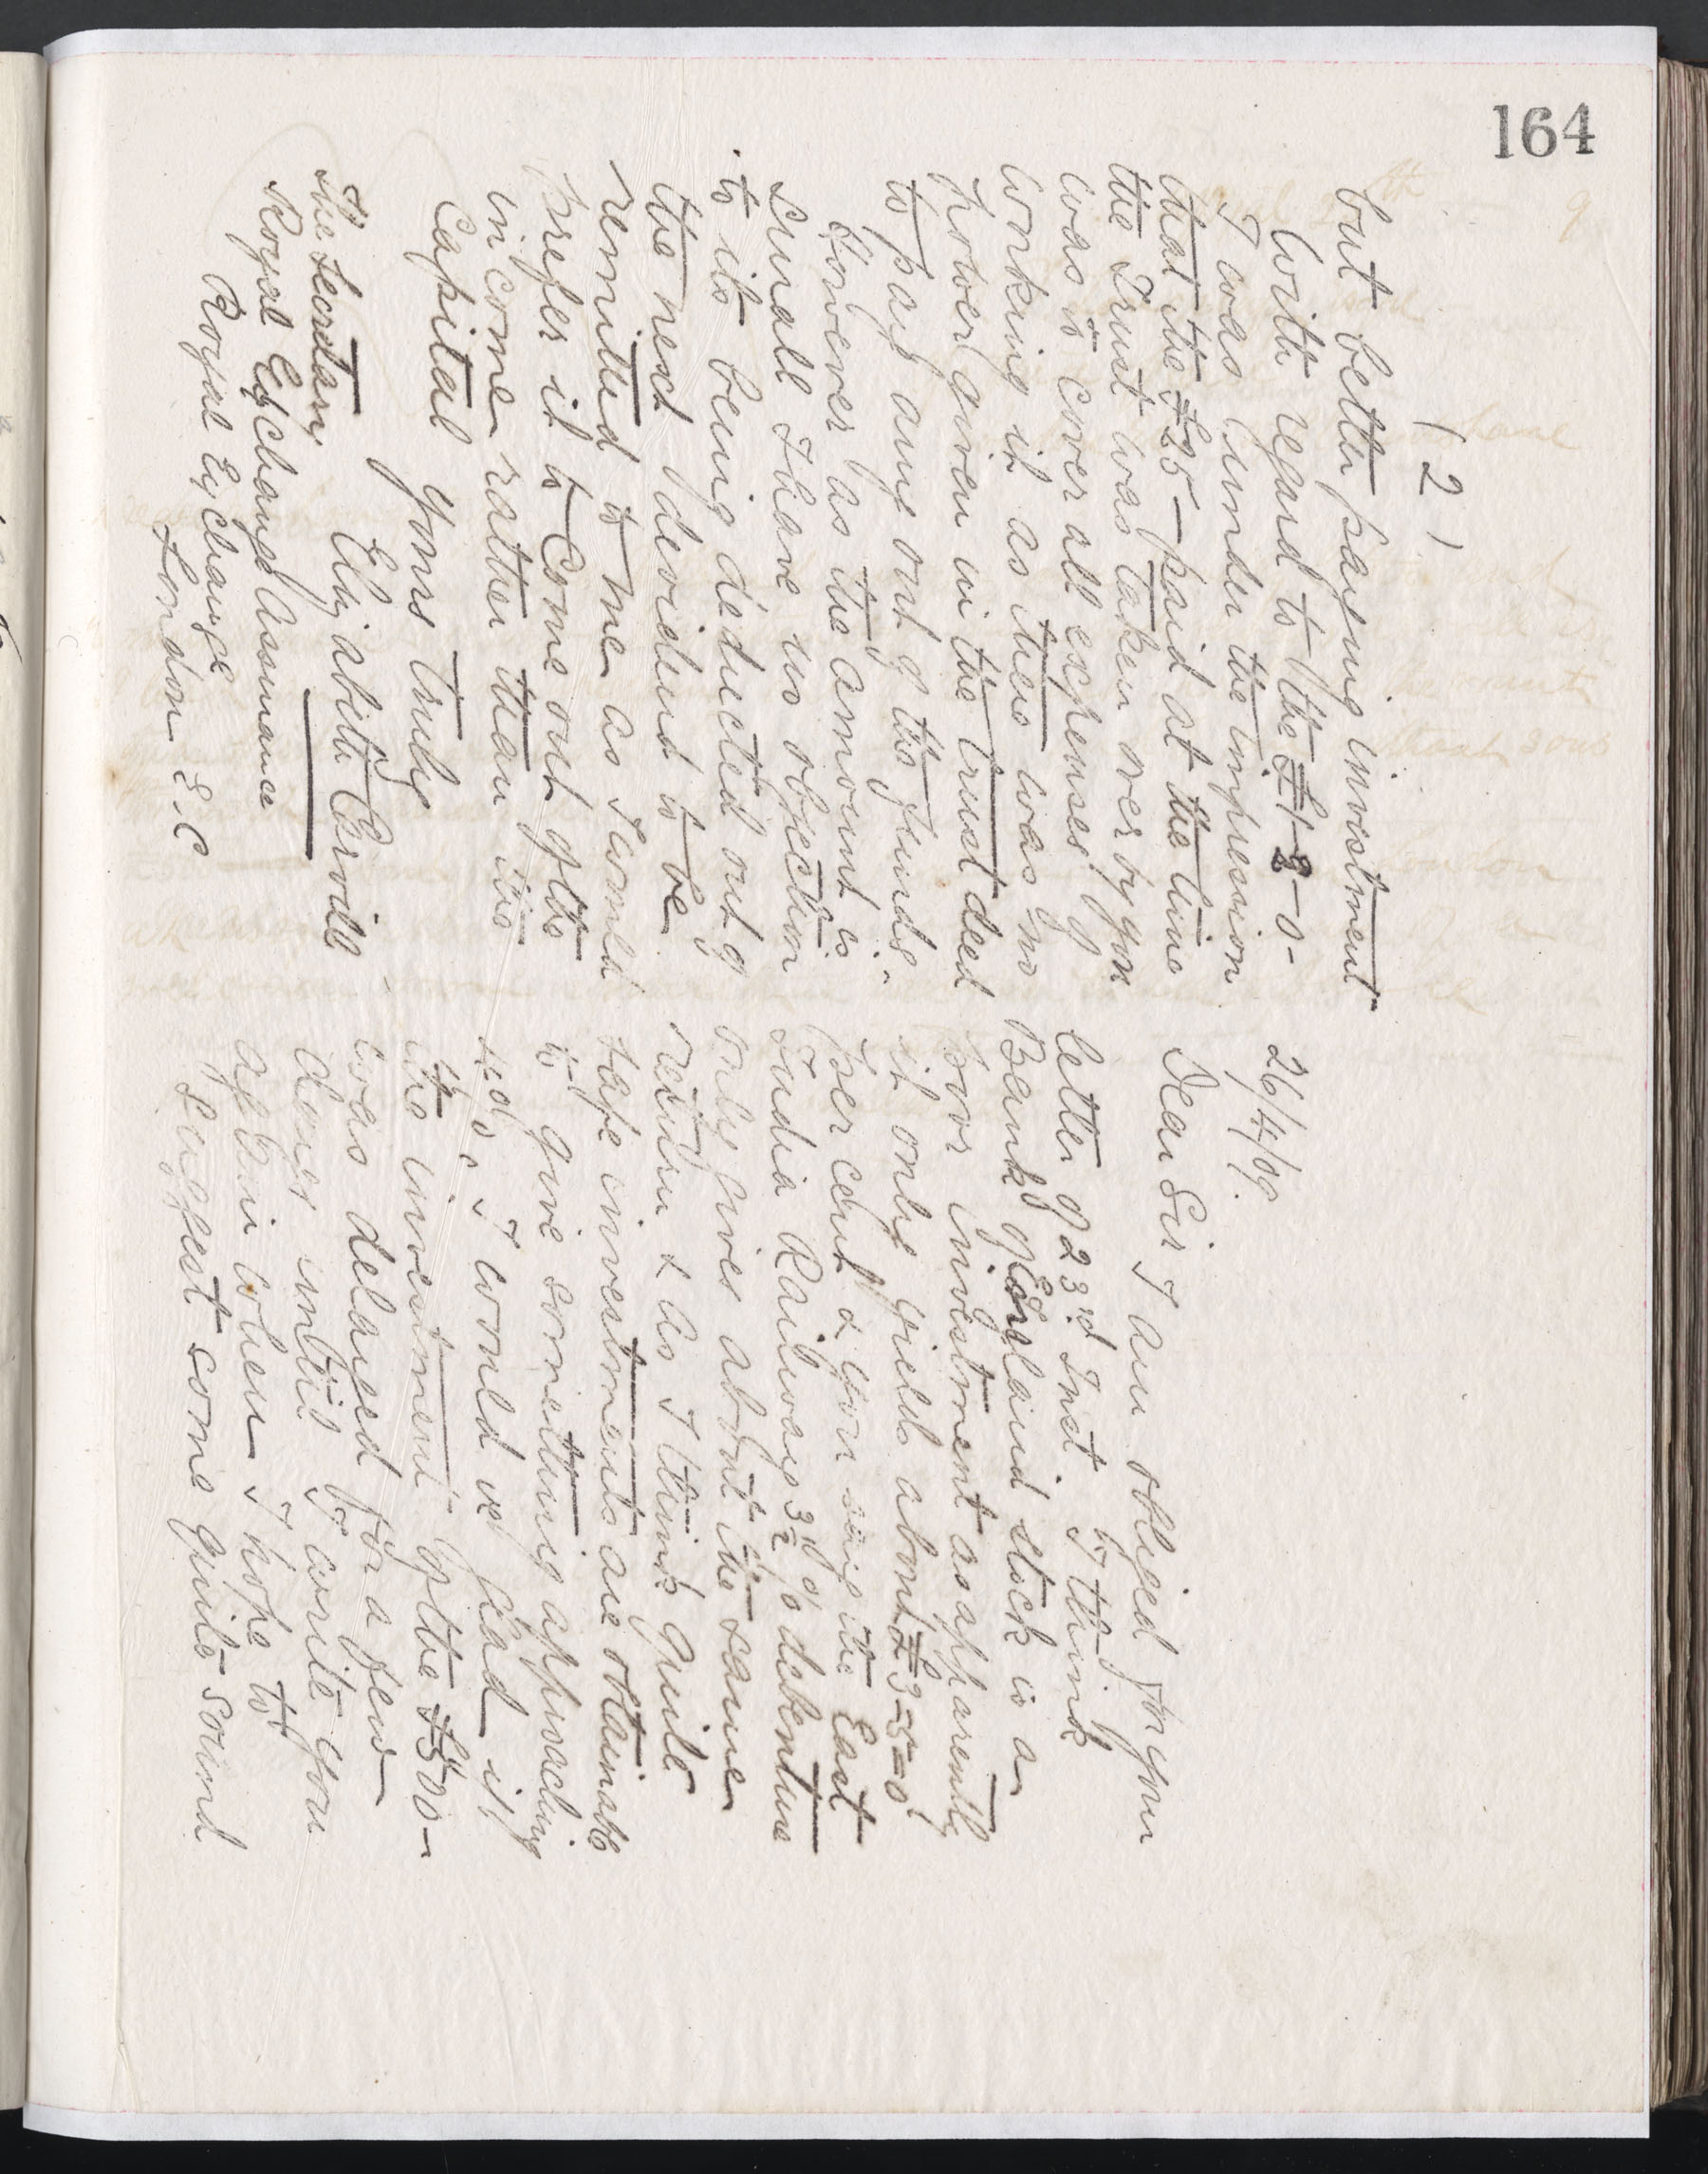 164
26/4/09.
Dear Sir I am obliged for your
letter of 23rd Inst. I think
Bank of England stock is a
poor investment as apparently
it only yields about £3-5-0
per cent & you say the East
India Railways 3½% debenture
only gives about the same
return & as I think quite
safe investments are obtainable
to give something approaching
4%, I would be glad if
the investment of the £500-
was delayed for a few
days until I write you
again when I hope to
suggest some quite sound
(2)
but better paying investment
With regard to the £1-8-0-
I was under the impression
that the £25- paid at the time
the Trust was taken over by you
was to cover all expenses of
working it as there was no
power given in the trust deed
to pay any out of the funds.
However as the amount is
small I have no objection
to its being deducted out of
the next devidend to be
remitted to me as I would
prefer it to come out of the
income rather than the
Capital
Yours truly
Elizabeth Ervill
The Secretary
Royal Exchange Assurance
Royal Exchange
London E.C